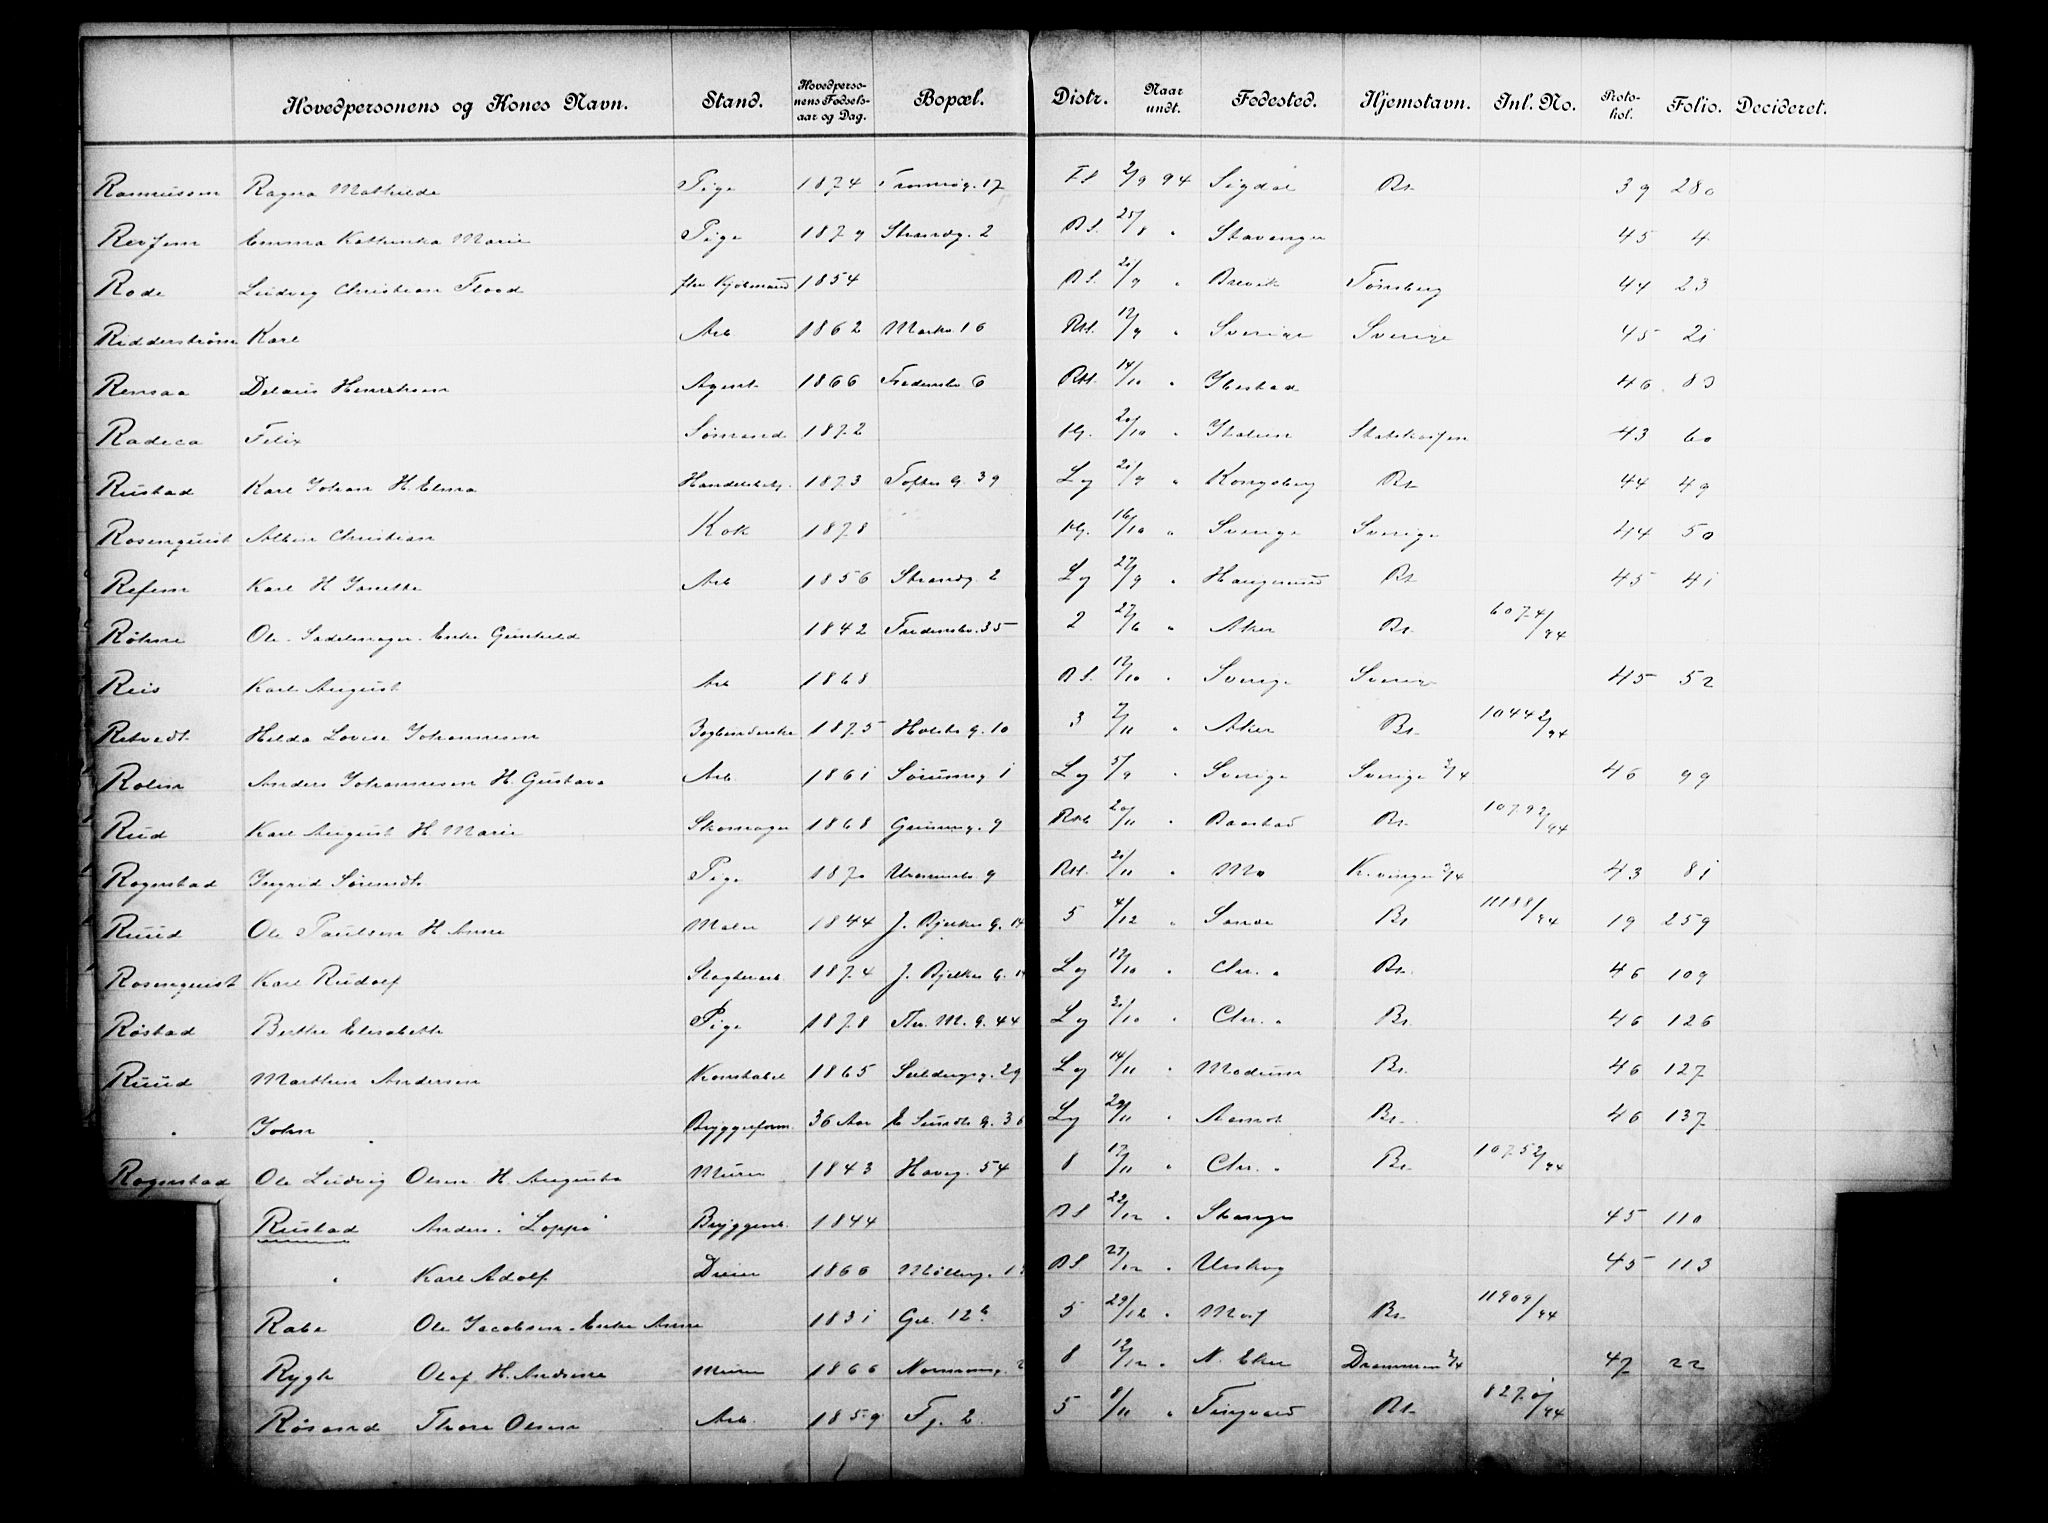 Hovedpersonens og Kones Navn. Stand. Hovedpersonens Fødselsaar og Dag. Bopæl. Distr. Naar undt. Fødested. Hjemstavn. Inl. No. Protokol. Folio. Decideret.
Rasmussen Ragna Mathilde Pige 1874 Tromsøg. 17 2/9 94 Sigdal Bt 39 280
Emma Kathinka Marie Pige 1879 Strandg. 2 BS. 25/8 " Stavanger 45 4
Rode Ludvig Christian Flood fhv Kjøbmand 1854 BS. " Brevik Tønsberg 44 23
Ridderstrøm Karl Arb 1862 Markv. 16 Rst. 12/9 " Sverige Sverige 45 21
Remsaa Henriksen Agent 1866 Fredensb. 6 Rst. 14/10 " Ibestad 46 83
Radeca Felix Sømand 1872 " Italien Statskassen 43 60
Rustad Karl Johan H. Elena 1873 Toftes G. 39 Lg " Kongsberg Bt 44 49
Rosenquist Albin Christian Kok 1878 16/10 " Sverige Sverige 44 50
Refsem Karl H Janette Arb 1856 Strandg 2 Lg 27/9 " Haugesund Bt 45 41
Røhne Ole Sadelmager Enke Gunhild 1842 Fredensb. 35 2 27/6 " Aker Bt. 6074/94
Reis Karl August Arb 1868 BS. 12/10 " Sverige Sverige 45 52
Retvedt Hilda Lovise Johannesen 1875 Holsts G. 10 3 7/11 " Aker Bt. 10442/94
Rolin Anders Johannesen H. Gustava Arb 1861 1 Lg 5/9 " Sverige Sverige 3/4 46 99
Rud Karl August H Marie Skomager 1868 Grünerg. 9 Rst 20/11 " Baastad Bt. 10792/94
Rogenstad Ingrid Pige 1870 Uranienb. 9 Rst. " Mo K.vinger 3/4 43 81
Ruud Ole Paulsen H Anne Maler 1844 J. Bjelkes G. 14 5 4/12 " Sande Bt 11188/94 19 259
Rosenquist Karl Rudolf Slagterarb. 1874 J. Bjelkes G. Lg 12/10 " Chr. " Bt. 46 109
Røstad Berthe Elisabeth Pige 1878 Thv. M. G. 44 Lg " Chr. " Bt. 46 126
Ruud Marthin Andersen Konstabel 1865 29 Lg 14/11 " Modum Bt. 46 127
" John Bryggeform. 36 Aar E Sundts G. 36 Lg 29/11 " Aamot Bt. 46 137
Rogenstad Ole Ludvig Olsen H. Augusta Murer 1843 Haveg. 54 8 17/11 " Chr. " Bt. 10752/94
Rustad Anders "Loppa" Bryggearb. 1844 BS 22/12 " Stange 45 110
" Karl Adolf Dreier 1866 Møllerg. BS 27/12 " Urskog 45 113
Rabe Ole Jacobsen Enke Anne 1831 Grl. 12b 5 29/12 " Bt. 11909/94
Rygh Olaf H. Andrine Murer 1866 8 12/12 " N. Eker Drammen 3/4 47 22
Røsand Thore Olsen Arb. 1859 Tg. 2. 5 8/11 " Tingvold Bt 8270/94